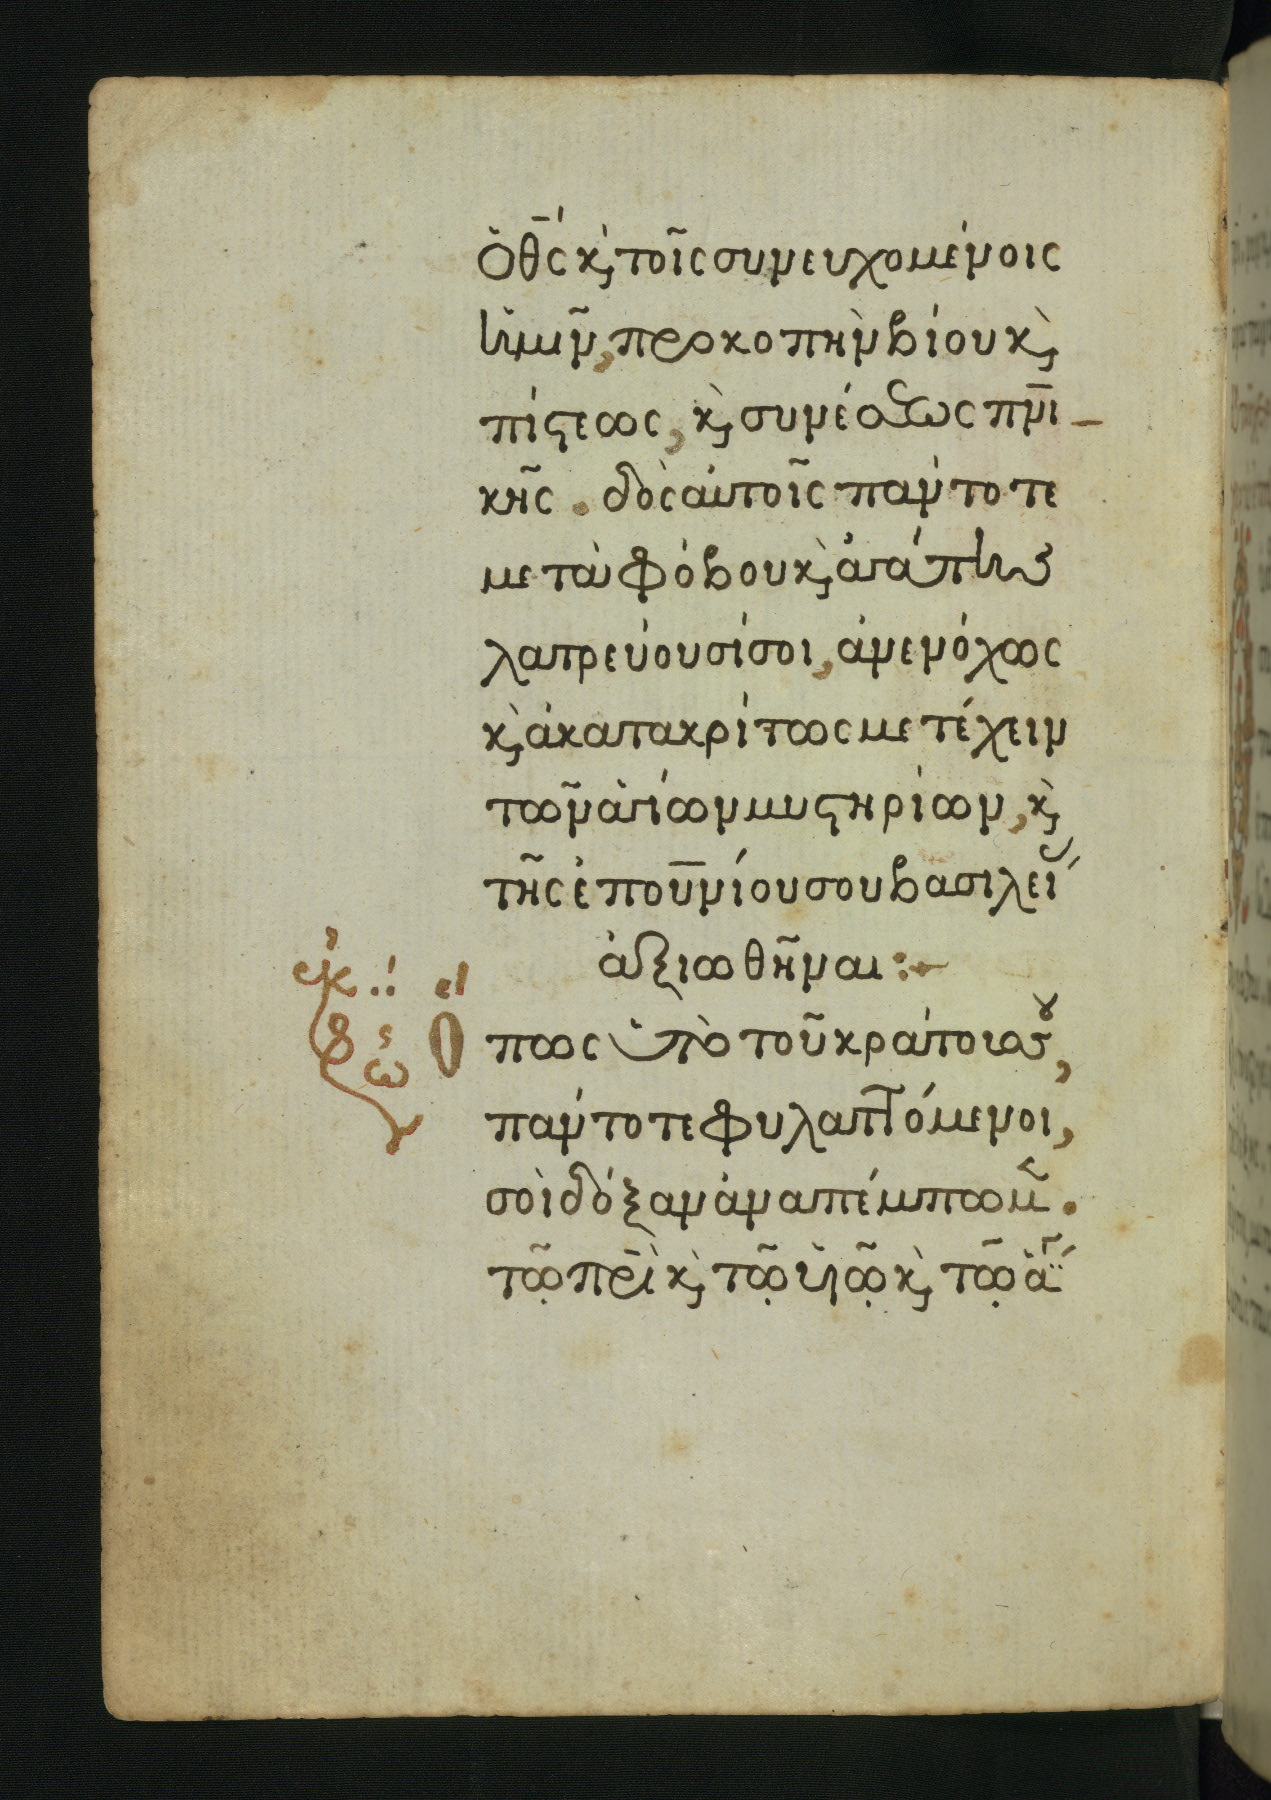 ὁ θς κ̀ τοῖς συνευχομένοις
ἡμῖν, προκοπὴν βίου κ̀
πίστεως, κ̀ συνέσεως πνι
κῆς. δὸς αὐτοῖς πάντοτε
μετὰ φόβου κ̀ ἀγάπης
λατρεύουσί σοι, ἀνενόχως
κ̀ ἀκατακρίτως μετέχειν
τῶν ἁγίων μυστηρίων, κ̀
τῆς ἐπουνίου σου βασιλεί
ἀξιωθῆναι:
ἐκ
Ὅ πως ὑπὸ τοῦ κράτους σου,
πάντοτε φυλαττόμενοι,
σοὶ δόξαν ἀναπέμπωμ.
τῶ πρὶ κ̀ τῶ υἱῶ κ̀ τῶ ἁ